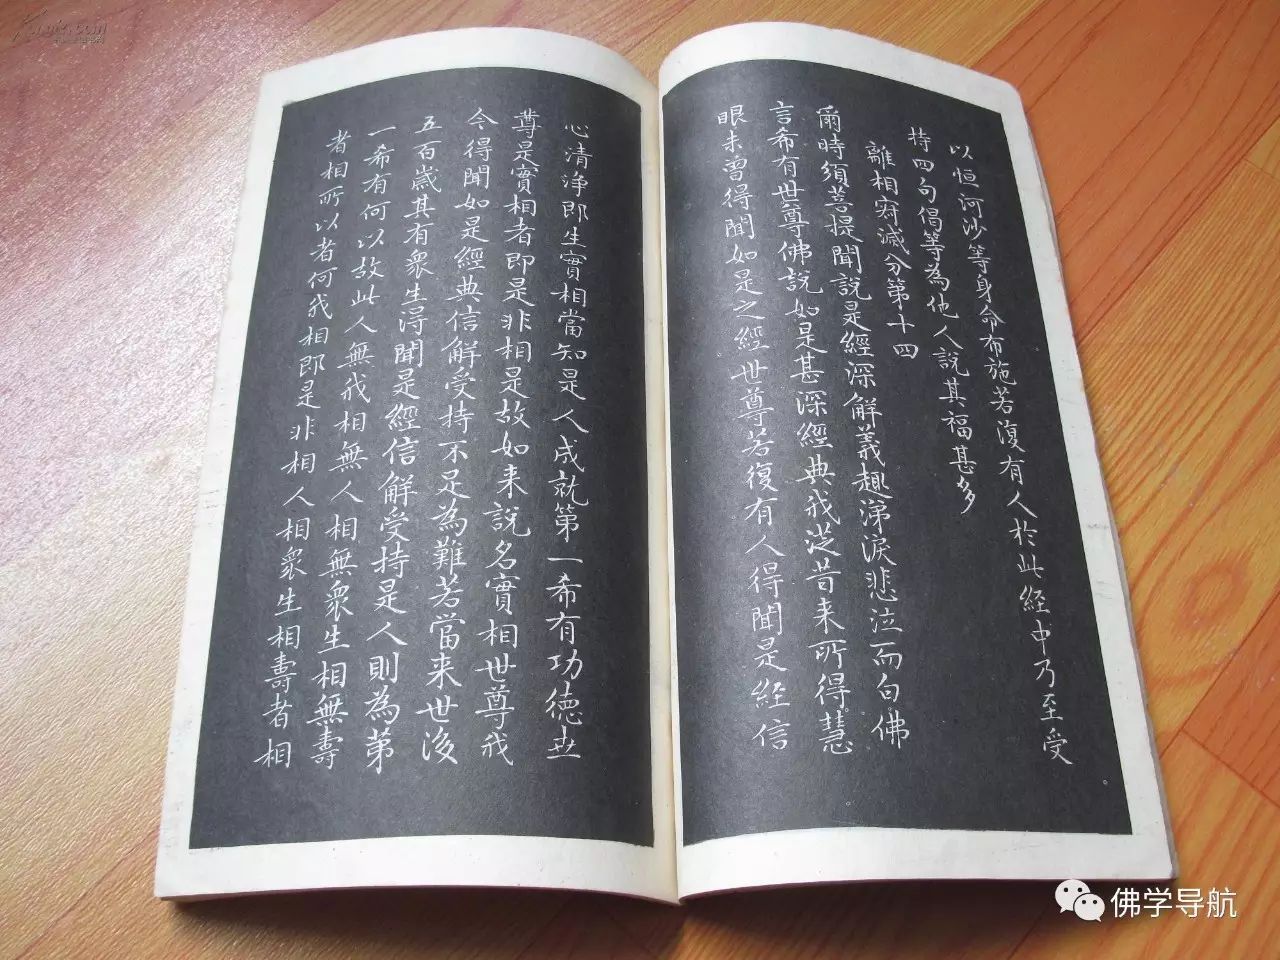 以恒河沙等身命布施若復有人於此經中乃至受
持四句偈等為他人說其福甚多
離相寂滅分第十四
爾時須菩提聞說是經深解義趣涕淚悲泣而白佛
言希有世尊佛說如是甚深經典我從昔来所得慧
眼未曾得聞如是之經世尊若復有人得聞是經信
心清淨即生實相當知是人成就第一希有功德世
尊是實相者即是非相是故如来說名實相世尊我
今得聞如是經典信解受持不足為難若當来世後
五百歲其有衆生得聞是經信解受持是人則為第
一希有何以故此人無我相無人相無衆生相無壽
者相所以者何我相即是非相人相衆生相壽者相
佛学导航